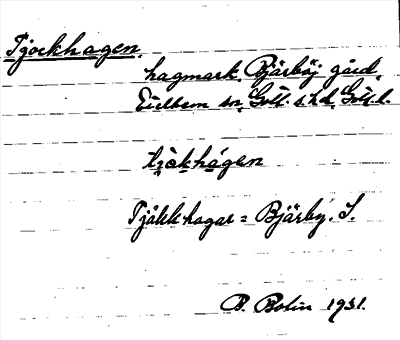 Tjockhagen.
hagmark. Bjärböj gård.
Eidhem sn, Gotl. s.hd, Gotl. l.
tjòkhágen
Tjåkkhagar = Bjärby. S.
B. Bolin 1931.